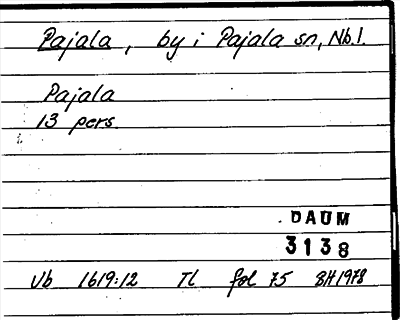 Pajala, by i Pajala sn, Nb.l.
Pajala
13 pers.
DAUM
3138
Vb 1619:12 Tl fol 75 BH 1978